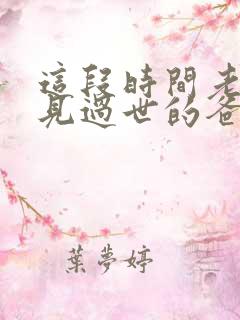 這段時間老
見過世的爸
葉夢婷